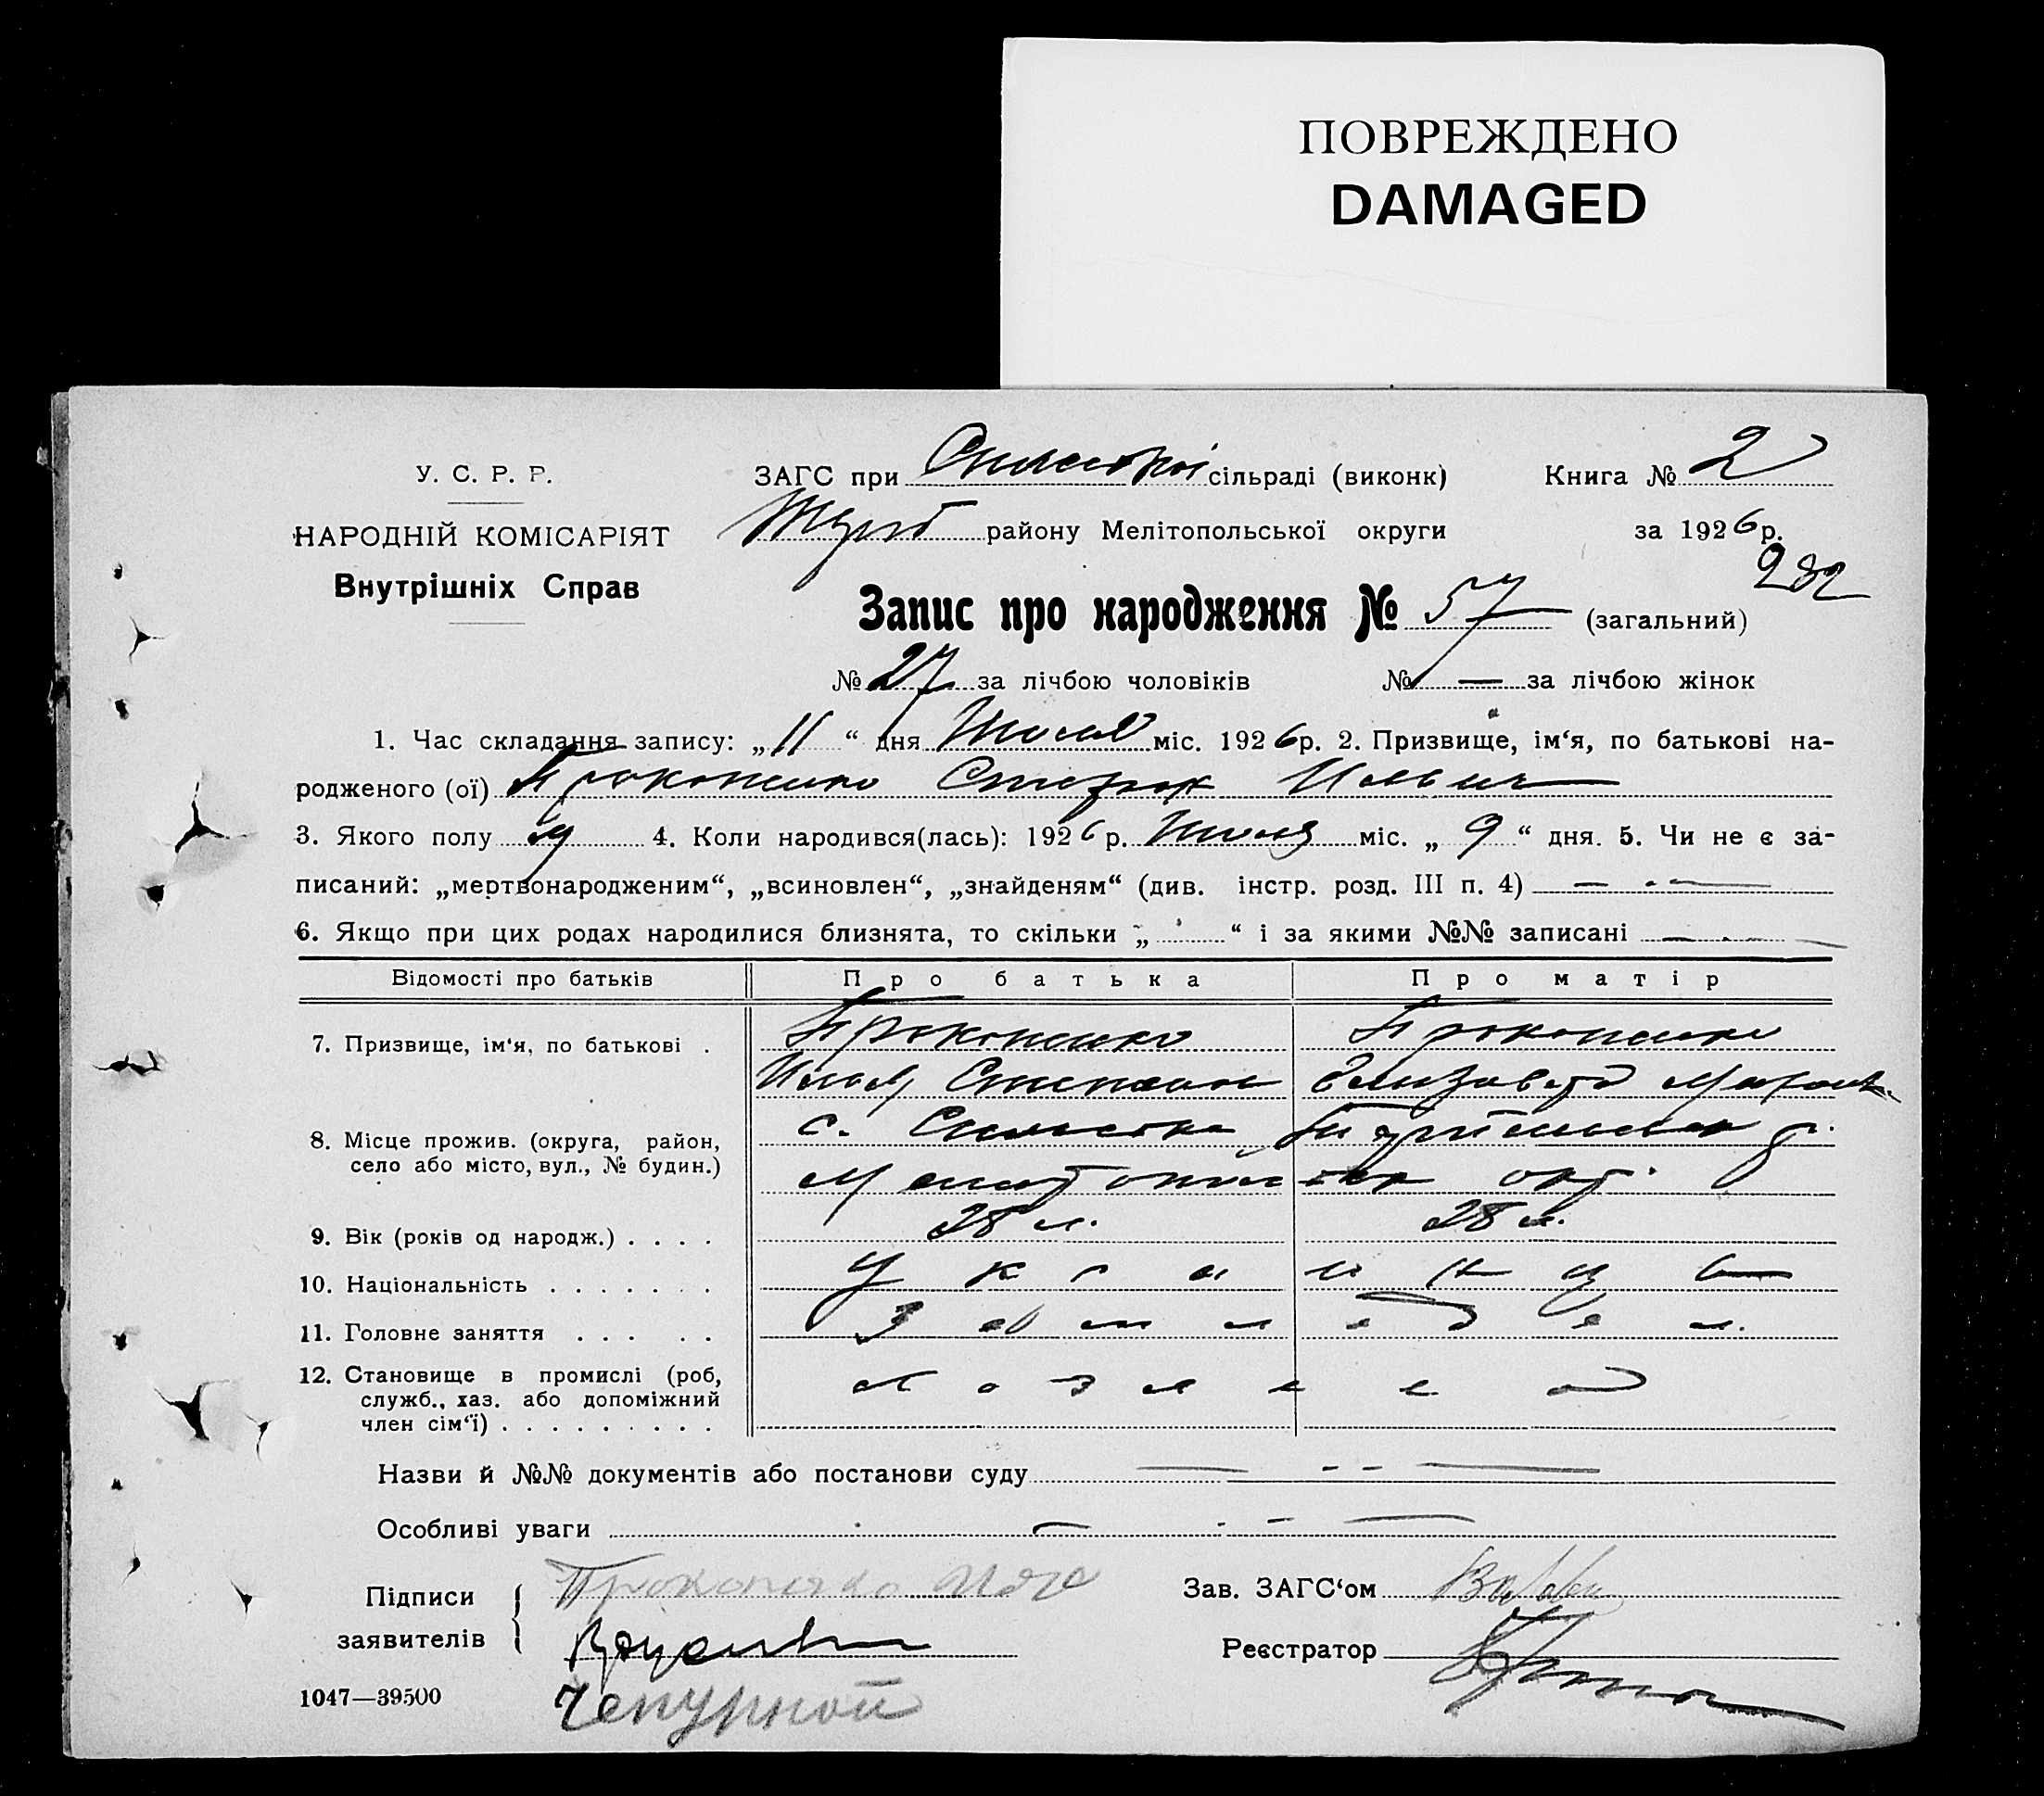 ПОВРЕЖДЕНО
DAMAGED
У. С. Р. Р.
НАРОДНІЙ КОМІСАРІЯТ
Внутрішніх Справ
ЗАГС при сільраді (виконк)
району Мелітопольської округи
Книга № 2
за 1926 р.
232
Запис про народження № 57 (загальний)
№ 27 за лічбою чоловіків № — за лічбою жінок
1. Час складання запису: „11“ дня Июля міс. 1926 р. 2. Призвище, ім‘я, по батькові на-
родженого (ої) Прокопенко Ильич
3. Якого полу м 4. Коли народився(лась): 1926 р. Июля міс. „9“ дня. 5. Чи не є за-
писаний: „мертвонародженим“, „всиновлен“, „знайденям“ (див. інстр. розд. III п. 4) —
6. Якщо при цих родах народилися близнята, то скільки „ “ і за якими №№ записані —
Відомості про батьків Про батька Про матір
7. Призвище, ім‘я, по батькові . Прокопенко Прокопенко
Илья Степанов Елизавета
8. Місце прожив. (округа, район,
село або місто, вул., № будин.)
с.
Мелитопольск окр.
9. Вік (років од народж.) . . . . 28 л. 28 л.
10. Національність . . . . . . . украинцы
11. Головне заняття . . . . . Земледел.
12. Становище в промислі (роб,
служб., хаз. або допоміжний
член сім‘ї) . . . . . . . . .
хозяева
Назви й №№ документів або постанови суду —
Особливі уваги —
Підписи
заявителів
Прокопенко Иля
Чепурной
Зав. ЗАГС‘ом
Реєстратор
1047—39500